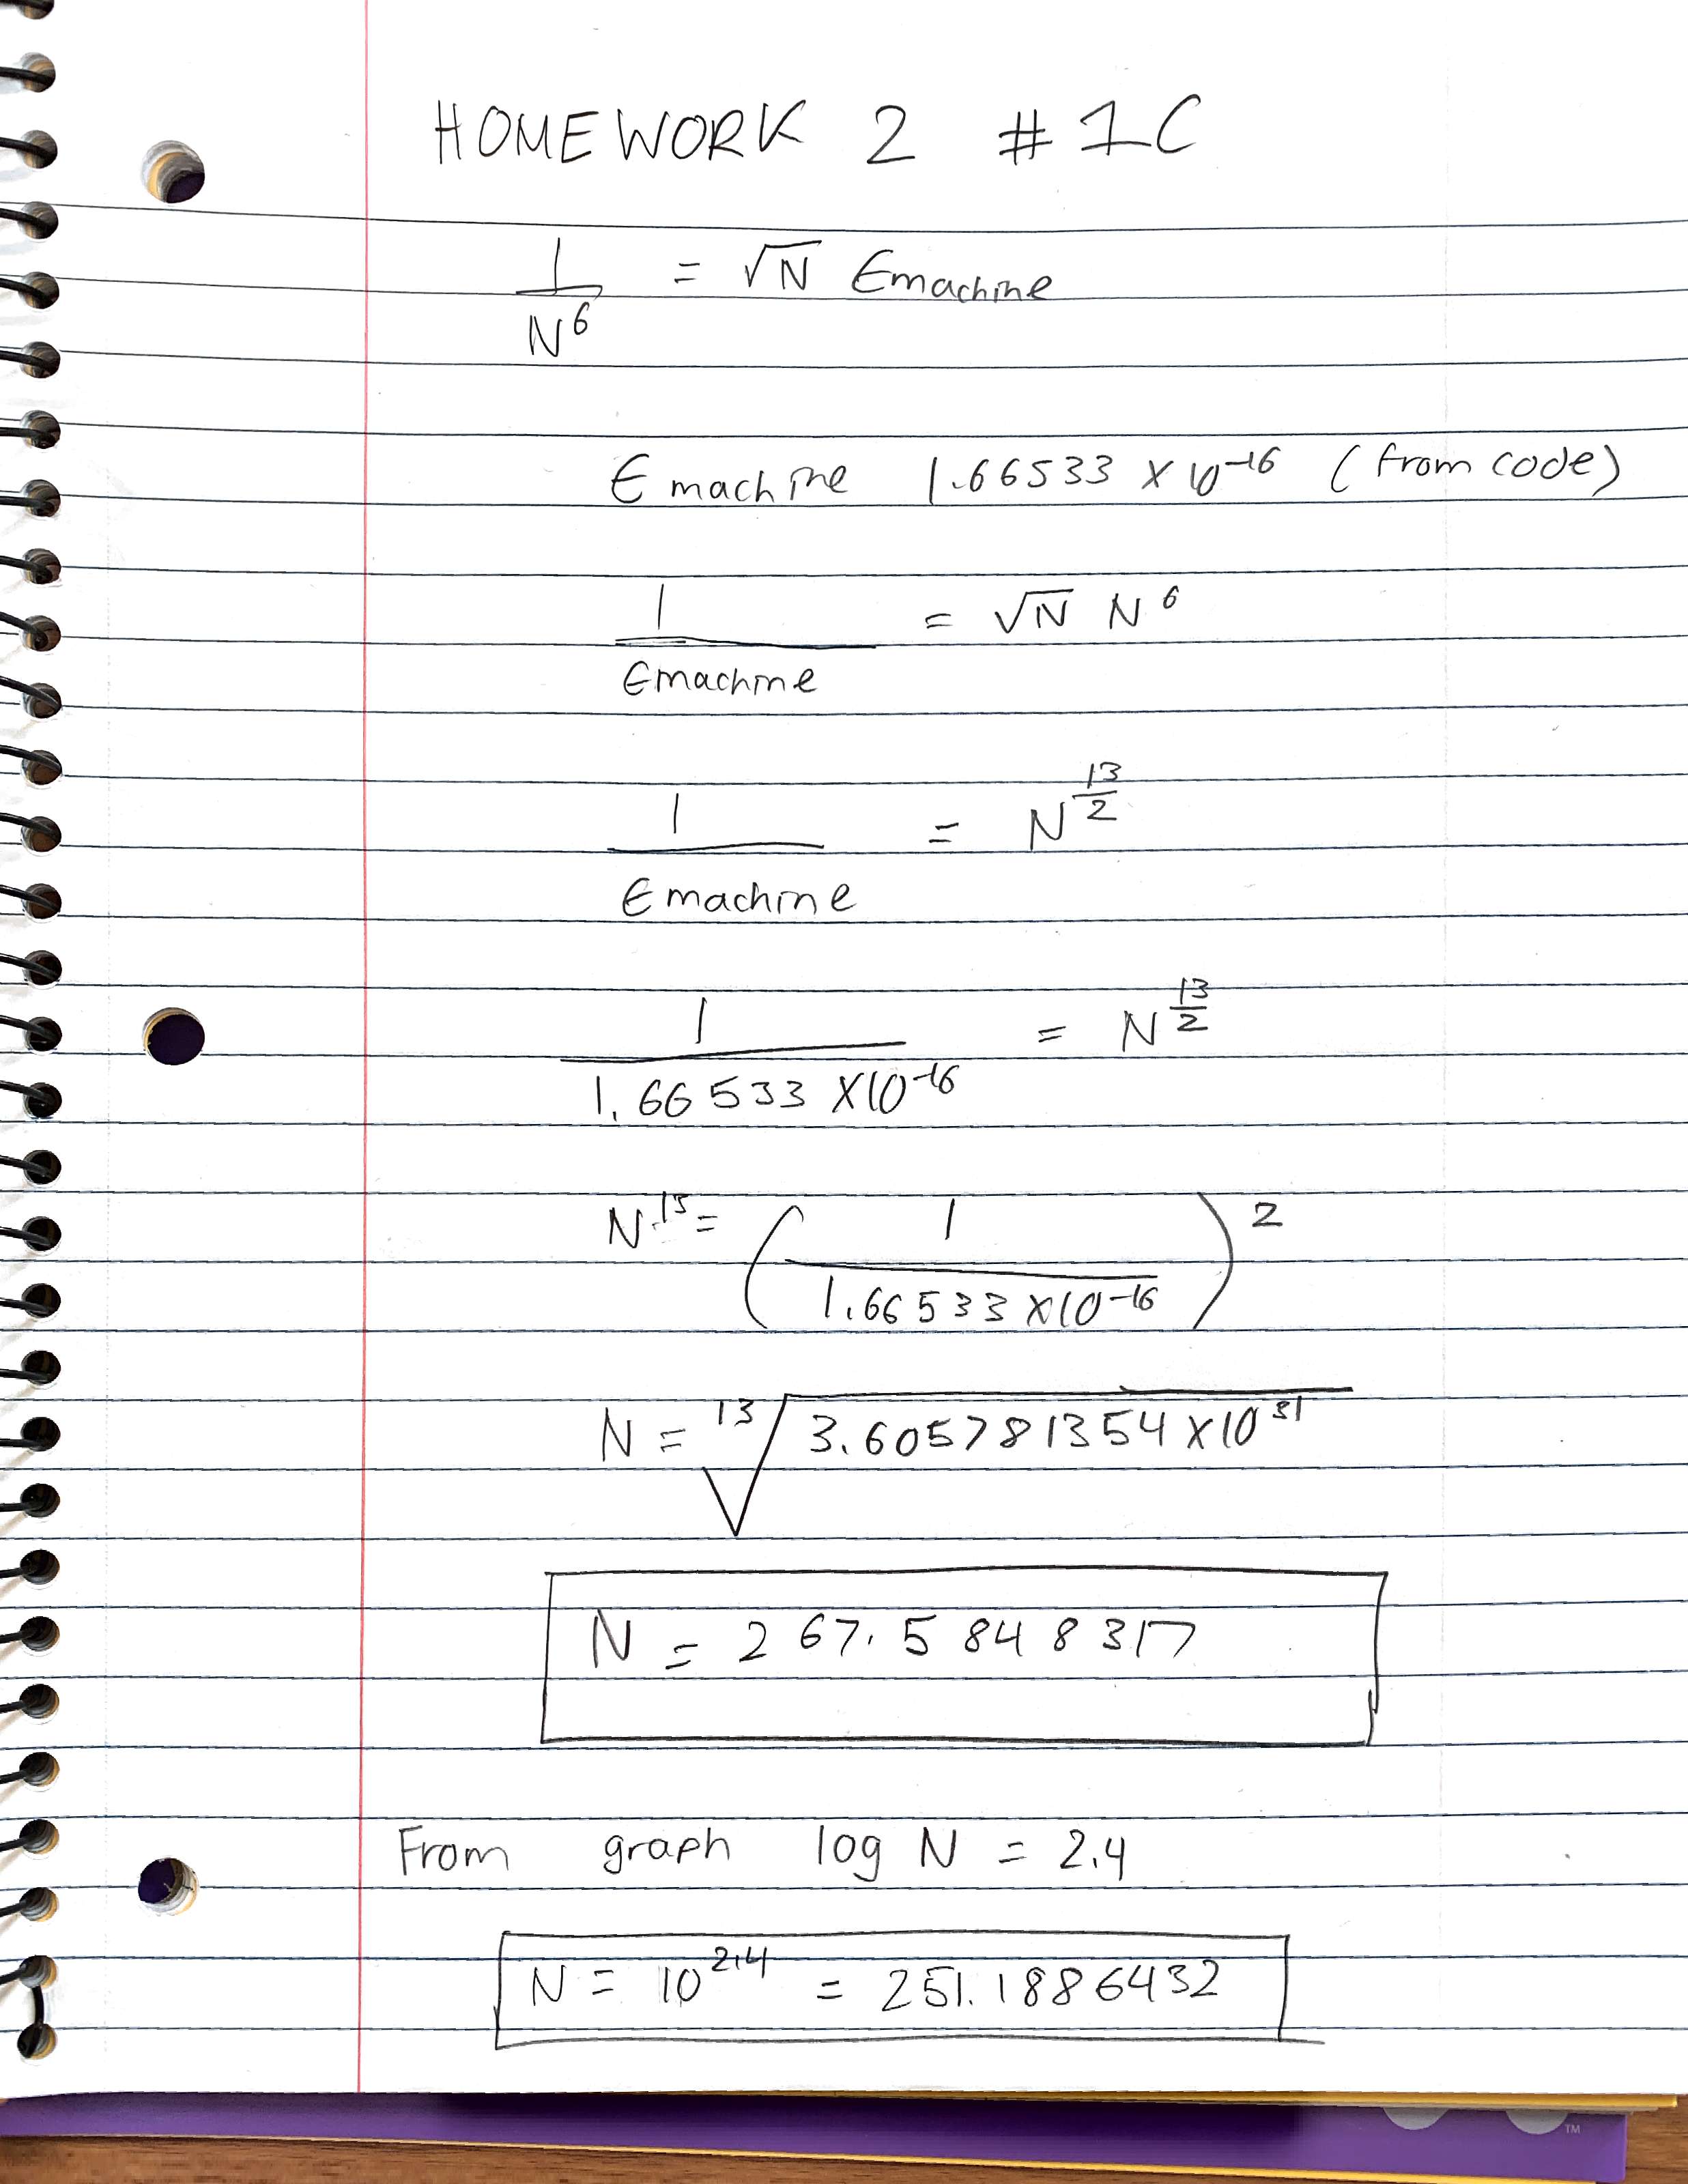 HOMEWORK 2 #1C
1/N^6 = √N Emachine
Emachine 1.66533 × 10^-16 (from code)
1/Emachine = √N N^6
1/Emachine = N^(13/2)
1/(1.66533 × 10^-16) = N^(13/2)
N^13 = (1/(1.66533 × 10^-16))^2
N = ¹³√(3.605781354 × 10^31)
N = 267.5848317
From graph log N = 2.4
N = 10^2.4 = 251.1886432
TM